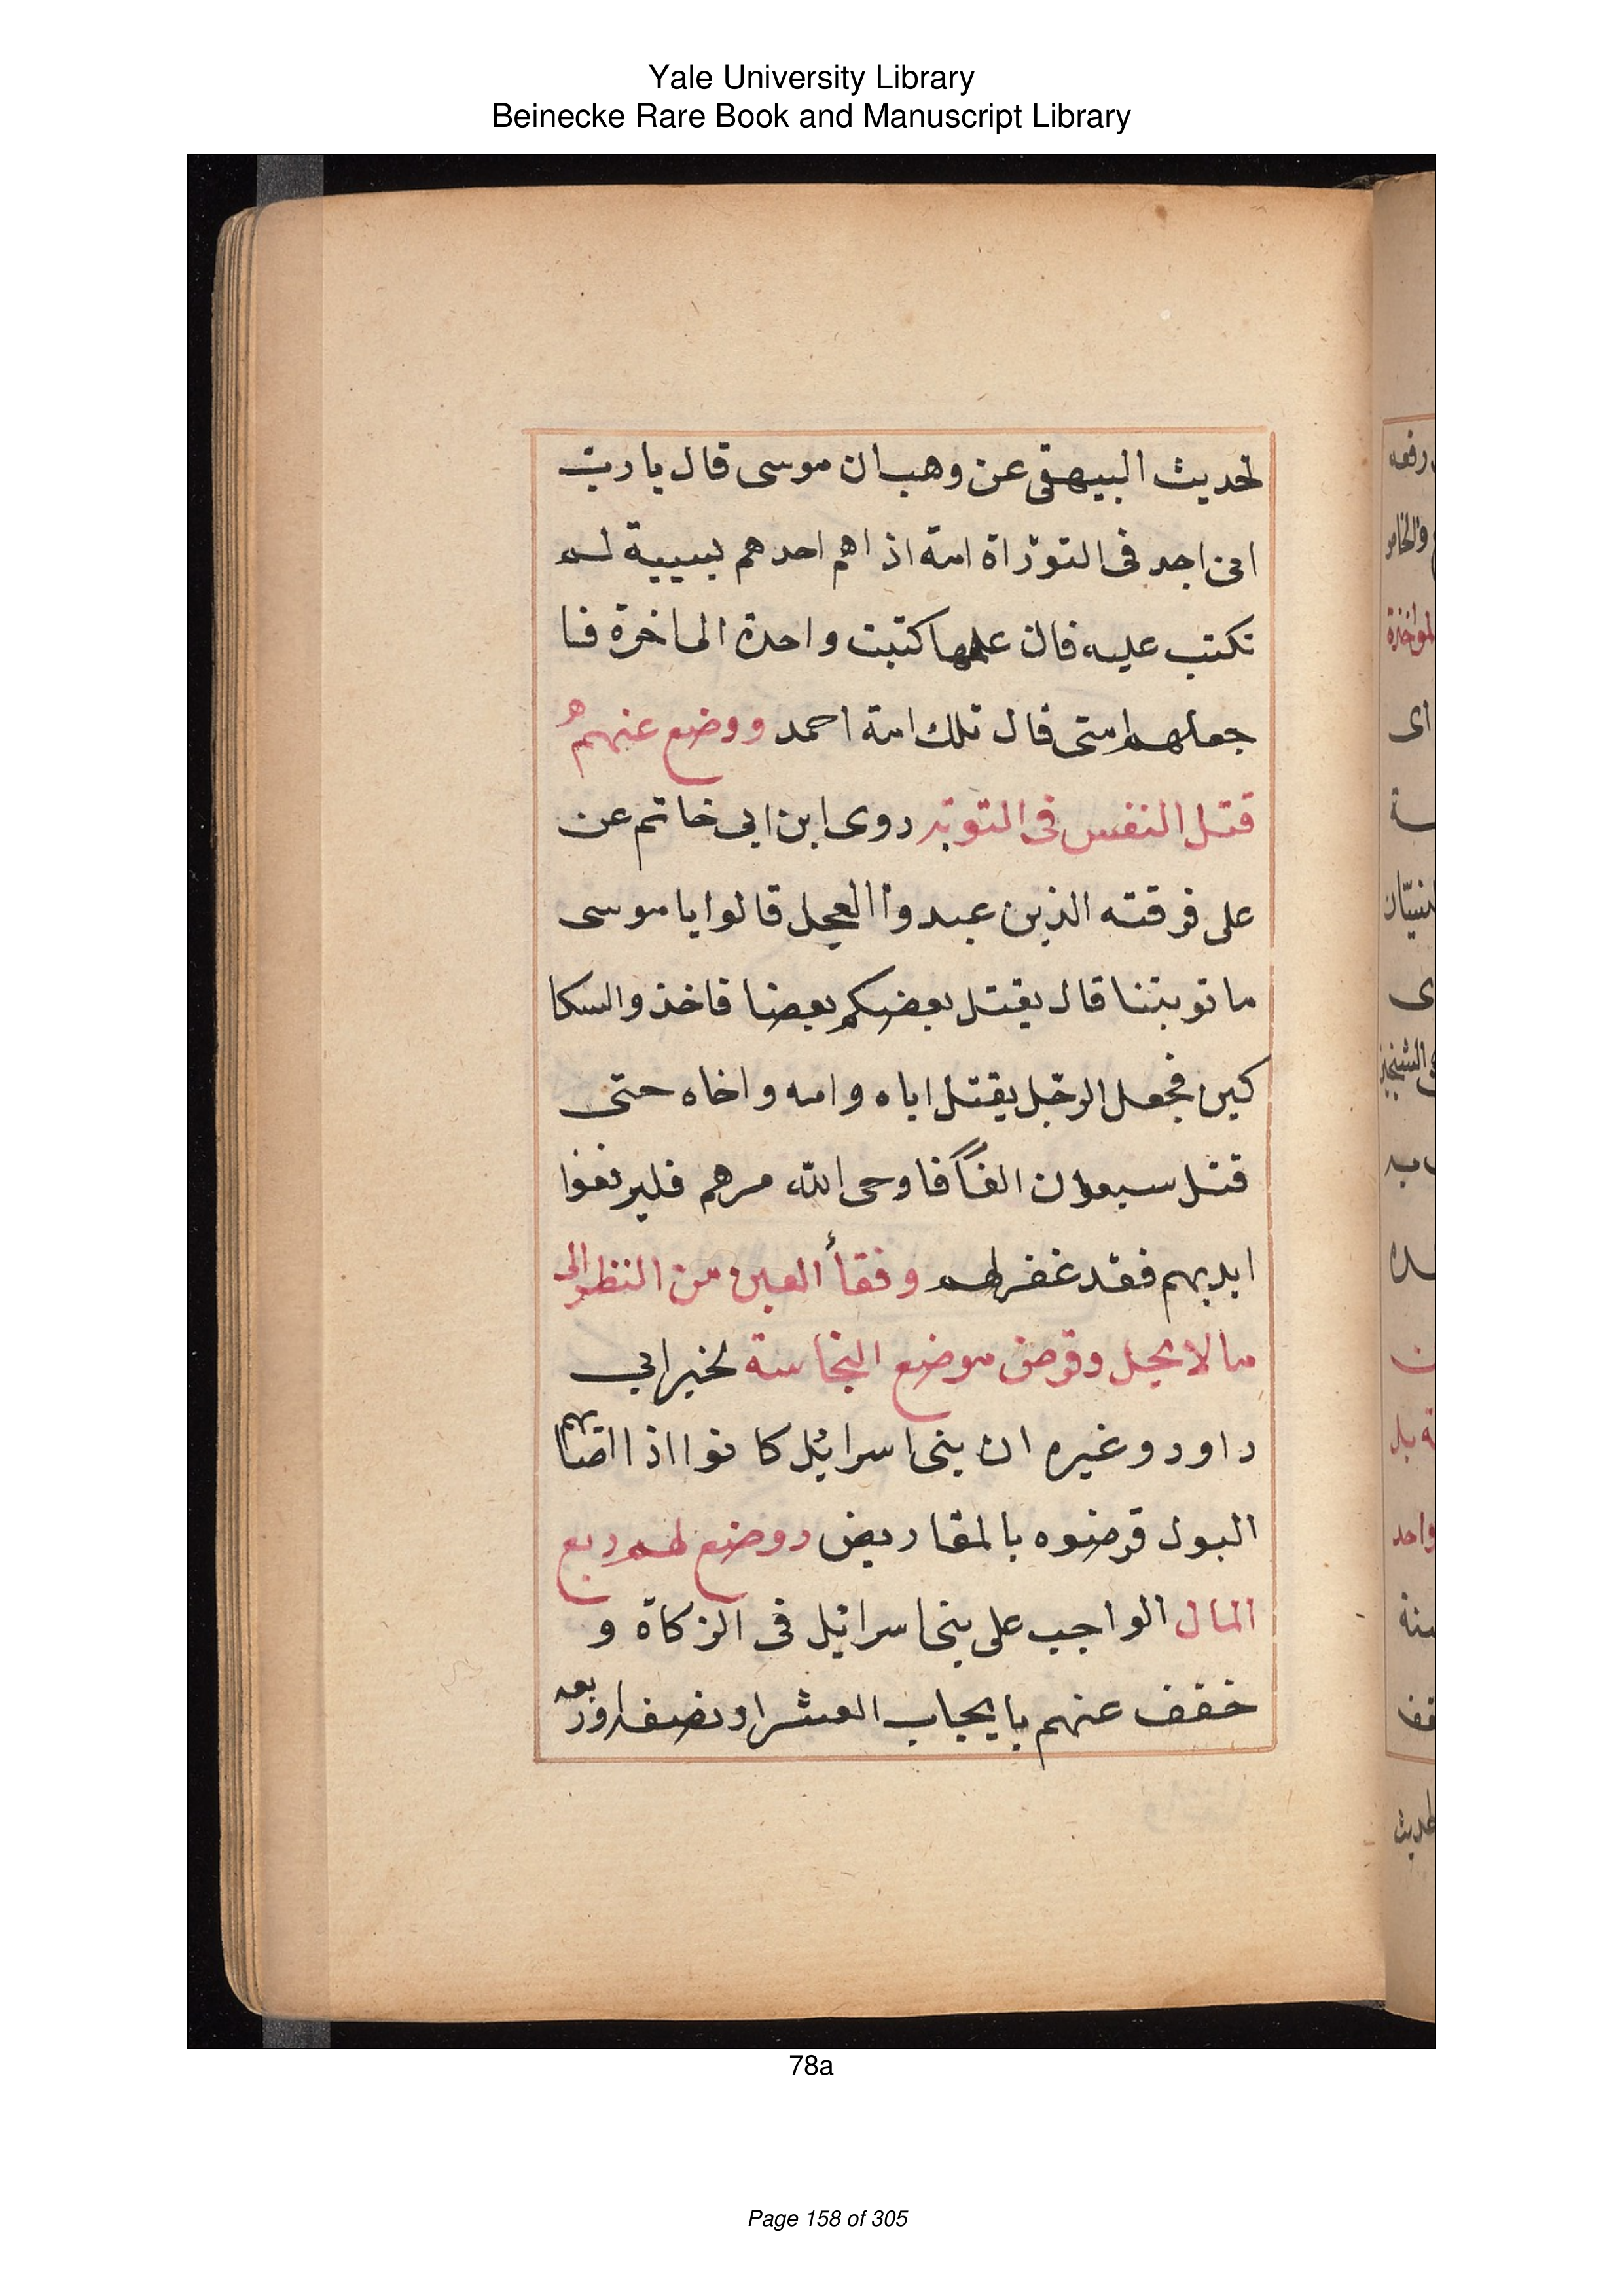 Yale University Library
Beinecke Rare Book and Manuscript Library
لحديث البيهقى عن وهب ان موسى قال يا ربّ
انى اجد فى التوراة امة اذا هم احدهم بسيية لم
تكتب عليه فان علمها كتبت واحدة الى اخرة فا
جعلهم امتى قال تلك امة احمد ووضع عنهم
قتل النفس فى التوبة روى ابن ابى خاتم عن
على فرقته الذين عبدوا العجل قالوا يا موسى
ما توبتنا قال يقتل بعضكم بعضا فاخذ والسكا
كين فجعل الرجل يقتل اباه وامه واخاه حتى
قتل سبعون الفًا فاوحى الله مرهم فليرفعوا
ايديهم فقد غفر لهم وفقأ العين من النظر الى
ما لا يحل وقرض موضع النجاسة لخبر ابي
داود وغيره ان بنى اسرائل كانوا اذا اصابهم
البول قرضوه بالمقاريض ووضع لهم ربع
المال الواجب على بنى اسرائيل فى الزكاة و
خفف عنهم بايجاب العشر او نصفه او ربعه
رفعه
والخامر
المواخذة
اى
واحد
لحديث
78a
Page 158 of 305